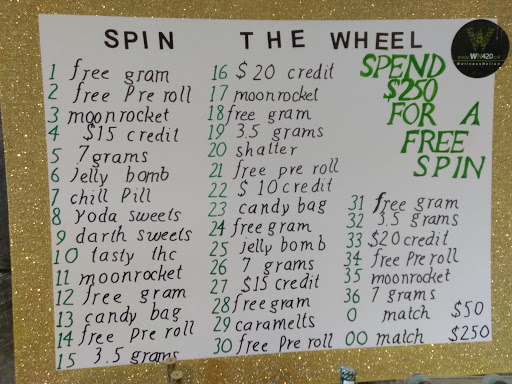 SPIN THE WHEEL
1 free gram
2 free Pre roll
3 moonrocket
4 $15 credit
5 7grams
6 Jelly bomb
7 chill Pill
8 Yoda sweets
9 darth sweets
10 tasty thc
11 moonrocket
12 free gram
13 candy bag
14 free Pre roll
15 3.5 grams
16 $20 credit
17 moonrocket
18 free gram
19 3.5 grams
20 shatter
21 free pre roll
22 $10 credit
23 candy bag
24 free gram
25 jelly bomb
26 7 grams
27 $15 credit
28 free gram
29 caramelts
30 free Pre roll
SPEND
$250
FOR A
FREE
SPIN
31 free gram
32 3.5 grams
33 $20 credit
34 free Pre roll
35 moonrocket
36 7 grams
0 match $50
00 match $250